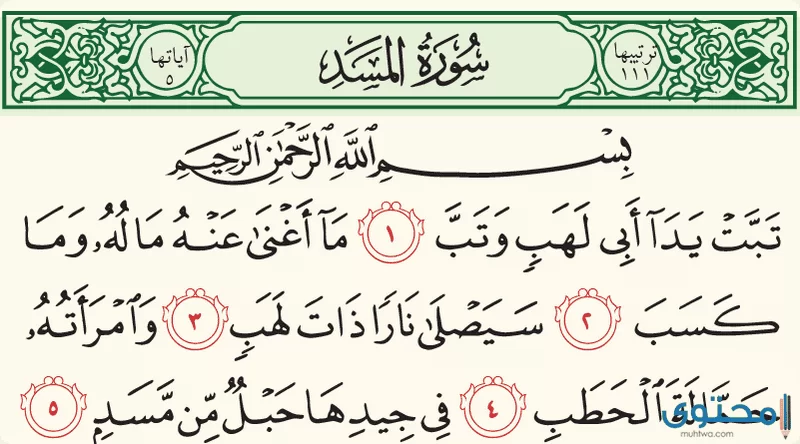 ترتيبها
١١١
سُورَةُ المَسَدِ
آياتها
٥
بِسْمِ ٱللَّهِ ٱلرَّحْمَٰنِ ٱلرَّحِيمِ
تَبَّتْ يَدَآ أَبِى لَهَبٍ وَتَبَّ ١ مَآ أَغْنَىٰ عَنْهُ مَالُهُۥ وَمَا
كَسَبَ ٢ سَيَصْلَىٰ نَارًا ذَاتَ لَهَبٍ ٣ وَٱمْرَأَتُهُۥ
حَمَّالَةَ ٱلْحَطَبِ ٤ فِى جِيدِهَا حَبْلٌ مِّن مَّسَدٍۭ ٥
محتوى
muhtwa.com